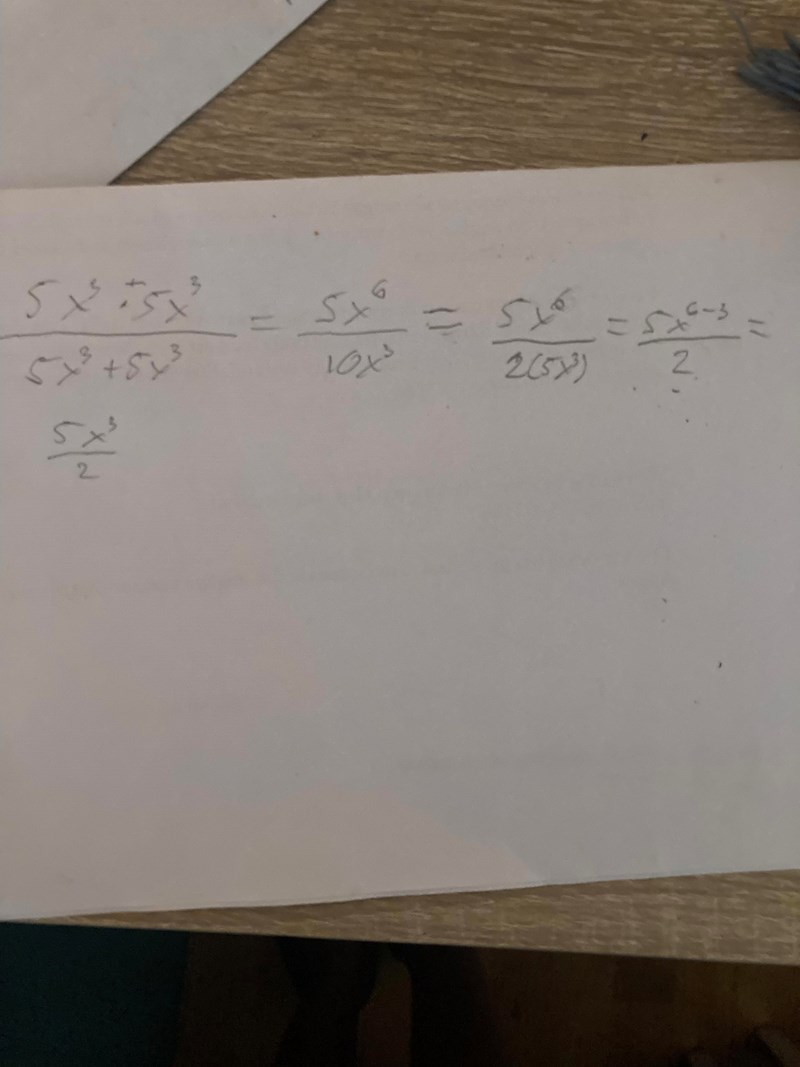 5x³ · 5x³ / 5x³ + 5x³ = 5x⁶ / 10x³ = 5x⁶ / 2(5x³) = 5x⁶⁻³ / 2 =
5x³ / 2